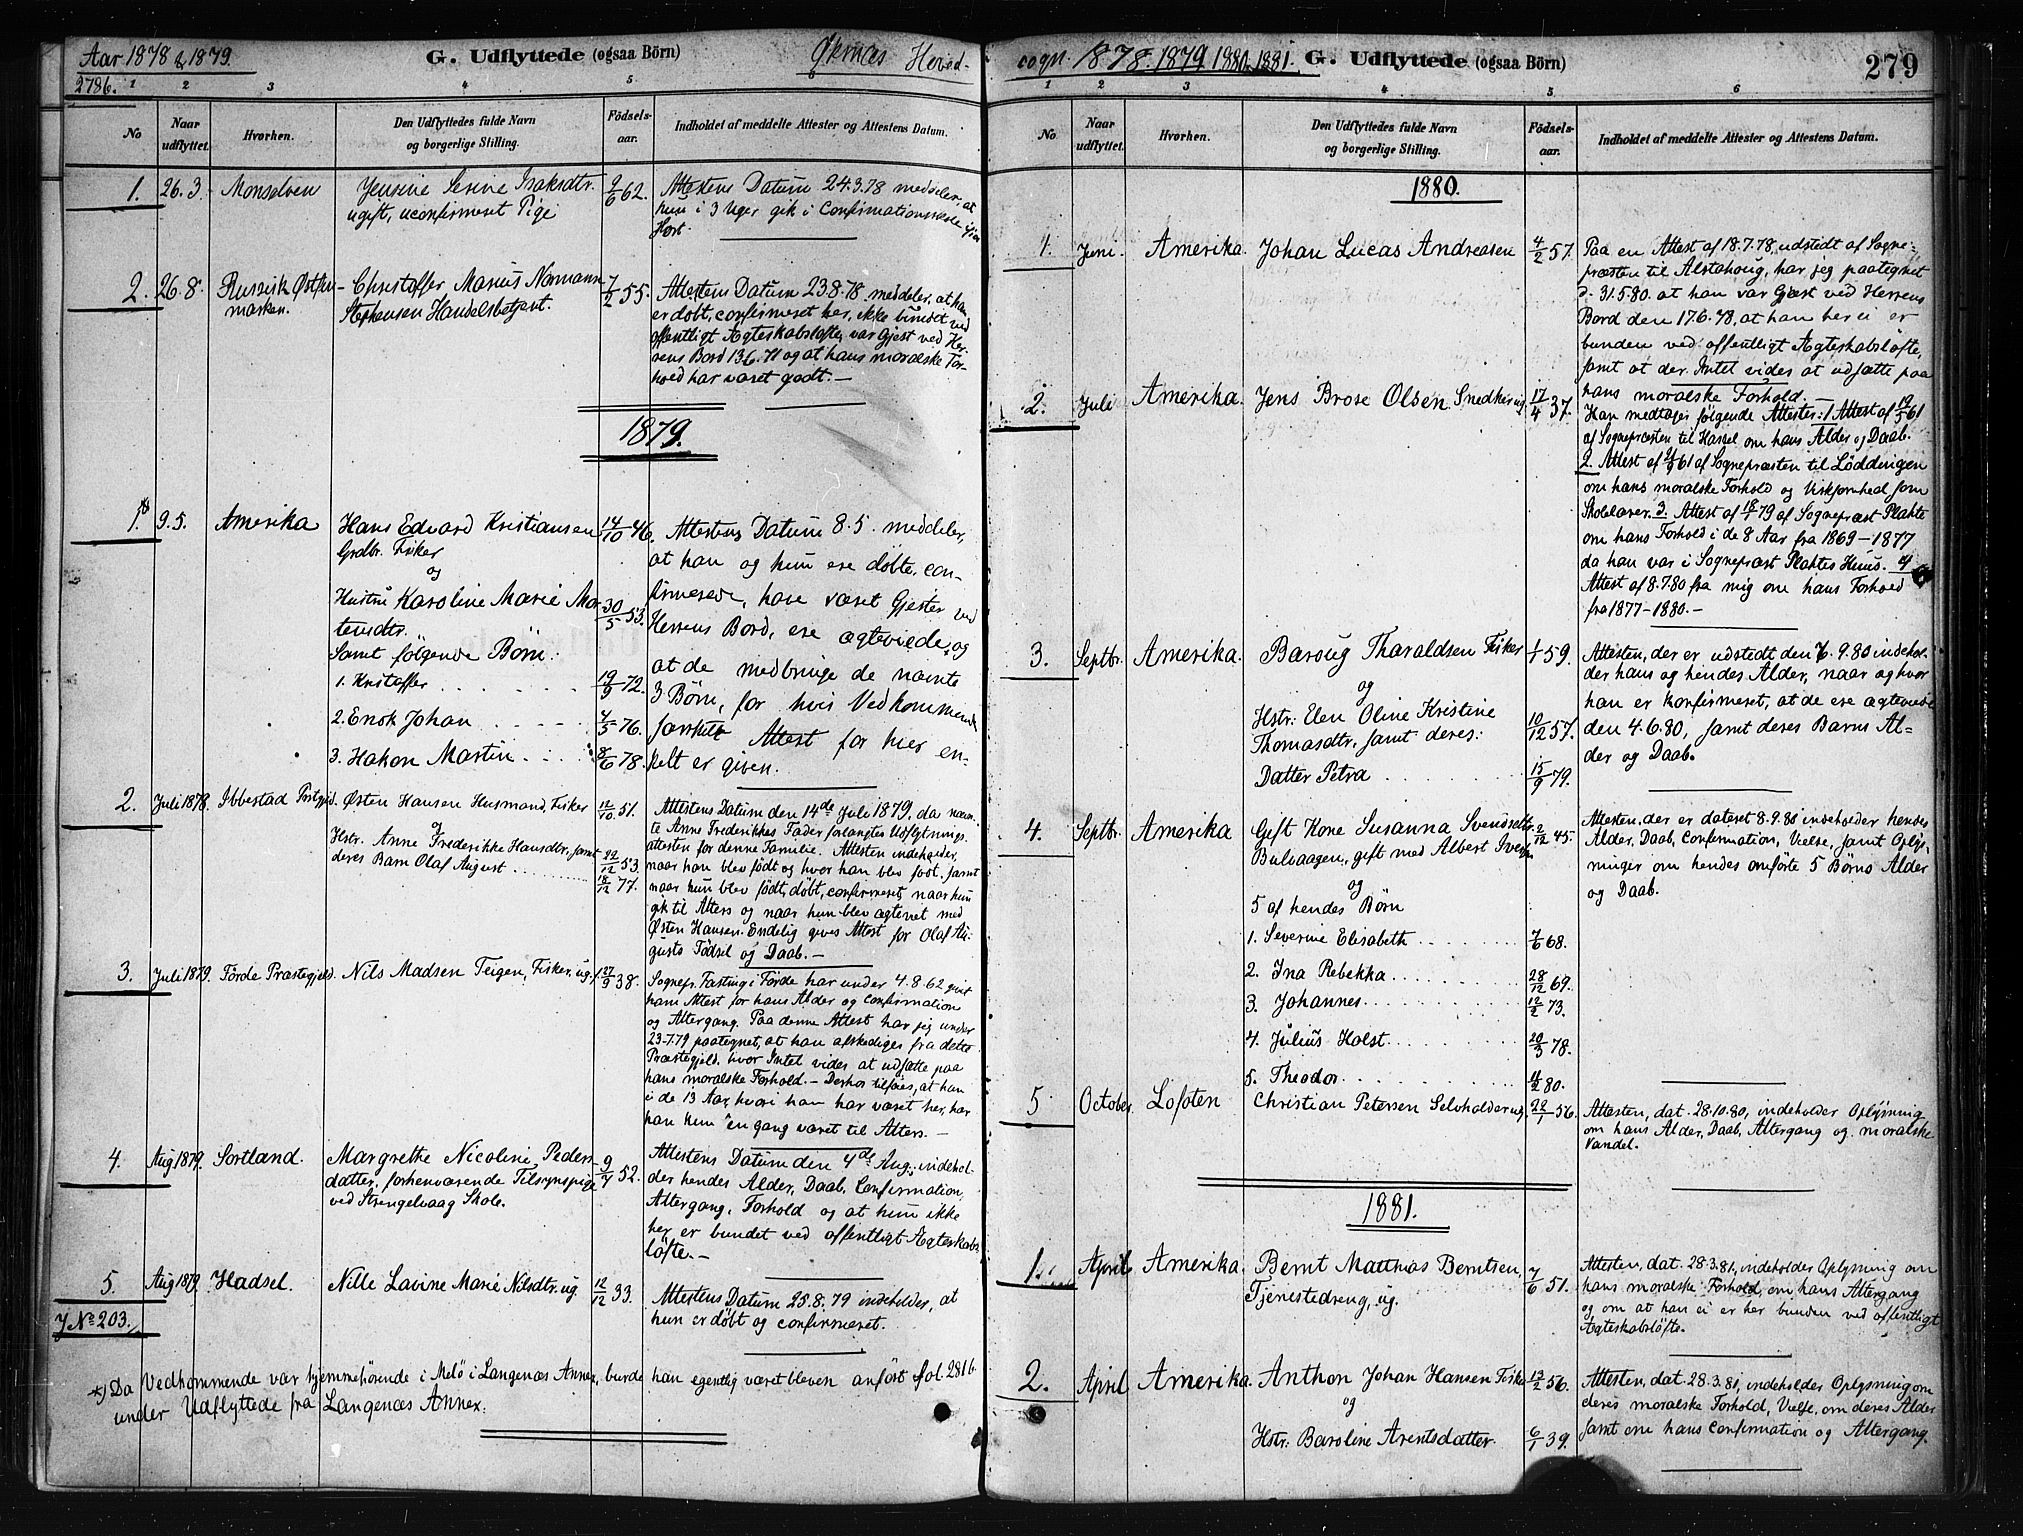 Aar 1878 & 1879.
G. Udflyttede (ogsaa Börn)
Øksnes Hoved-
278b.
1 2 3 4 5
No
Naar udflyttet.
Hvorhen.
Den Udflyttedes fulde Navn og borgerlige Stilling.
Födsels-aar.
Indholdet af meddelte Attester og Attestens Datum.
1. 26.3. Monselven
Jensine Serine Isaksdtr. 9/6 62.
ugift, uconfirmeret Pige
Attestens Datum 24.3.78 meddeler, at
hun i 3 Uger gik i Confirmationsskole
Høst.
2. 26.8. Russisk Østfin-
marken.
Christoffer Marius Normann 7/2 55.
Stephensen Handelsbetjent.
Attestens Datum 23.8.78 meddeler, at han
er døbt, confirmeret her, ikke bundet ved
offentligt Ægteskabsløfte, var Gjest ved Her-
rens Bord 13.6.71 og at hans moralske For-
hold har været godt. —
1879.
1.*) 9.5. Amerika
Hans Edvard Kristiansen 14/10 46.
Grdbr. Fisker
og
Hustru Karoline Marie Mor- 30/5 53.
tensdtr.
Samt følgende Børn:
1. Kristoffer 19/9 72.
2. Enok Johan 4/5 76.
3. Hakon Martin 8/6 78.
Attestens Datum 8.5. meddeler,
at han og hun ere døbte, con-
firmerede, have været Gjester ved
Herrens Bord, ere ægteviede, og
at de medbringe de nævnte
3 Børn, for hvis Vedkommende
særskilt Attest for hver en-
kelt er given.
2. Juli 1878. Ibbestad Prstgjd.
Østen Hansen Husmand, Fisker 12/10 51.
og
Hstr. Anne Frederikke Hansdtr. samt 22/12 53.
deres Barn Olaf August 18/12 77.
Attestens Datum den 14de Juli 1879, da nævn-
te Anne Frederikkes Fader forlangte Udflytnings-
attesten for denne Familie. Attesten indeholder,
naar han blev født og hvor han blev født, samt
naar hun blev født, døbt, confirmeret, naar hun
gik til Alters og naar hun blev ægteviet med
Østen Hansen. Endelig gives Attest for Olaf Au-
gusts Fødsel og Daab. —
3. Juli 1879. Førde Præstegjeld.
Nils Madsen Teigen, Fisker, ug. 27/9 38.
Sognepr. Fasting i Førde har under 4.8.62 givet
ham Attest for hans Alder og Confirmation
og Altergang. Paa denne Attest har jeg under
23.7.79 paategnet, at han afskediges fra dette
Præstegjeld, hvor Intet vides at udsætte paa
hans moralske Forhold. — Derhos tilføies, at han
i de 13 Aar, hvori han har været her, har
han kun "en gang været til Alters. —
4. Aug 1879. Sortland.
Margrethe Nicoline Peders- 9/7 52.
datter, forhenværende Tilsynspige
ved Strengelvaag Skole.
Attestens Datum den 4de Aug., indehol-
der hendes Alder, Daab, Confirmation,
Altergang, Forhold og at hun ikke
her er bundet ved offentligt Ægteskabs-
løfte. —
5. Aug 1879. Hadsel.
Nille Lavine Marie Nilsdtr. ug. 12/12 33.
Attestens Datum 25.8.79 indeholder, at
hun er døbt og confirmeret.
J No 203.
*) Da Vedkommende var hjemmehørende i Melø i Langenæs Annex, burde han egentlig været bleven anført Fol. 281b.
under Udflyttede fra Langenæs Annex.
sogn. 1878. 1879 1880. 1881. G. Udflyttede (ogsaa Börn) 279
1 2 3 4 5 6
No
Naar udflyttet.
Hvorhen.
Den Udflyttedes fulde Navn og borgerlige Stilling.
Födsels-aar.
Indholdet af meddelte Attester og Attestens Datum.
1880.
1. Juni. Amerika. Johan Lucas Andreasen 4/2 57.
Paa en Attest af 18.7.78, udstedt af Sogne-
præsten til Alstahoug, har jeg paategnet
d. 31.5.80 at han var Gjest ved Herrens
Bord den 17.6.78, at han her ei er
bunden ved offentligt Ægteskabsløfte,
samt at der Intet vides at udsætte paa
hans moralske Forhold. —
2. Juli Amerika. Jens Brose Olsen. Snedker ug. 17/4 37.
Han medtager følgende Attester: 1 Attest af 19/5 61
af Sognepræsten til Hassel om hans Alder og Daab.
2. Attest af 21/9 61 af Sognepræsten til Lødingen
om hans moralske Forhold og Virksomhed som
Skolelærer. 3. Attest af 18/1 79 af Sognepræst Plahte
om hans Forhold i de 8 Aar fra 1869 - 1877
da han var i Sognepræst Plahtes Huus. 4
Attest af 8.7.80 fra mig om hans Forhold
fra 1877-1880. —
3. Septbr. Amerika. Baroug Tharaldsen Fisker 1/1 59.
og
Hstr: Elen Oline Kristine 10/12 57.
Thomasdtr. samt deres:
Datter Petra 15/9 79.
Attesten, der er udstedt den 7.9.80 indehol-
der hans og hendes Alder, naar og hvor
han er konfirmeret, at de ere ægteviede
den 4.6.80, samt deres Barns Al-
der og Daab.
4. Septbr. Amerika
Gift Kone Susanna Svendsdtr. 2/12 45.
Bulvaagen, gift med Albert Svendsen
og
5 af hendes Børn
1. Severine Elisabeth 7/6 68.
2. Ina Rebekka 28/12 69.
3. Johannes 12/2 73.
4. Julius Holst 20/3 78.
5. Theodor 11/2 80.
Attesten, der er dateret 8.9.80 indeholder hendes
Alder, Daab, Confirmation, Vielse, samt Oplys-
ninger om hendes anførte 5 Børns Alder
og Daab.
5. October. Lofoten Christian Petersen Selvholder ug. 22/1 56.
Attesten, dat. 28.10.80, indeholder Oplysning
om hans Alder, Daab, Altergang og moralske
Vandel.
1881.
1. April Amerika. Bernt Matthias Berntsen, 7/6 51.
Tjenestedreng, ug.
Attesten, dat. 28.3.81, indeholder Oplysning om
hans moralske Forhold, om hans Altergang
og om at han ei er her bunden ved offentligt
Ægteskabsløfte.
2. April Amerika. Anthon Johan Hansen Fisker 13/2 56.
og
Hstr. Baroline Arentsdatter. 6/1 39.
Attesten, dat. 28.3.81, indeholder Oplysning om
deres moralske Forhold, Vielse, om deres Alder
samt om hans Confirmation og Altergang.